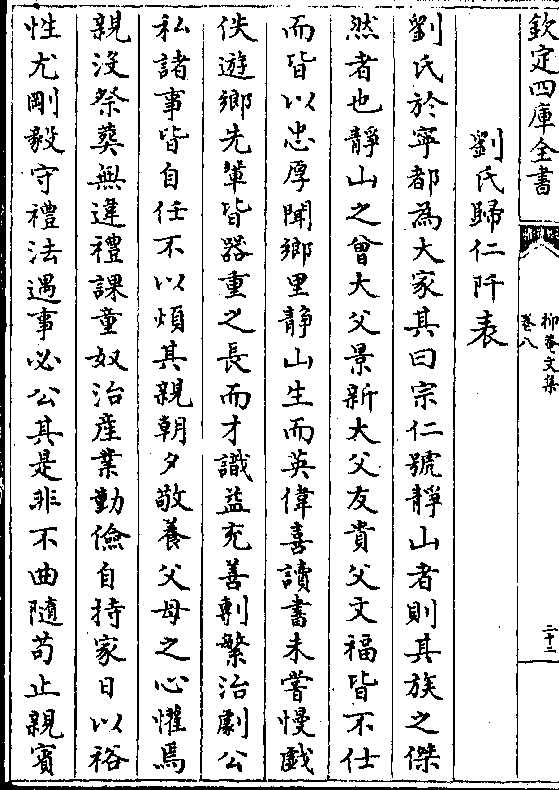 欽定四庫全書
抑菴文集
卷八
二十二
劉氏歸仁阡表
劉氏於寧都為大家其曰宗仁號靜山者則其族之傑
然者也靜山之曾大父景新大父友貴父文福皆不仕
而皆以忠厚聞鄉里靜山生而英偉喜讀書未嘗慢戲
佚遊鄉先輩皆器重之長而才識益充善剸繁治劇公
私諸事皆自任不以煩其親朝夕敬養父母之心懽焉
親沒祭葬無違禮課童奴治產業勤儉自持家日以裕
性尤剛毅守禮法遇事必公其是非不曲隨苟止親賓